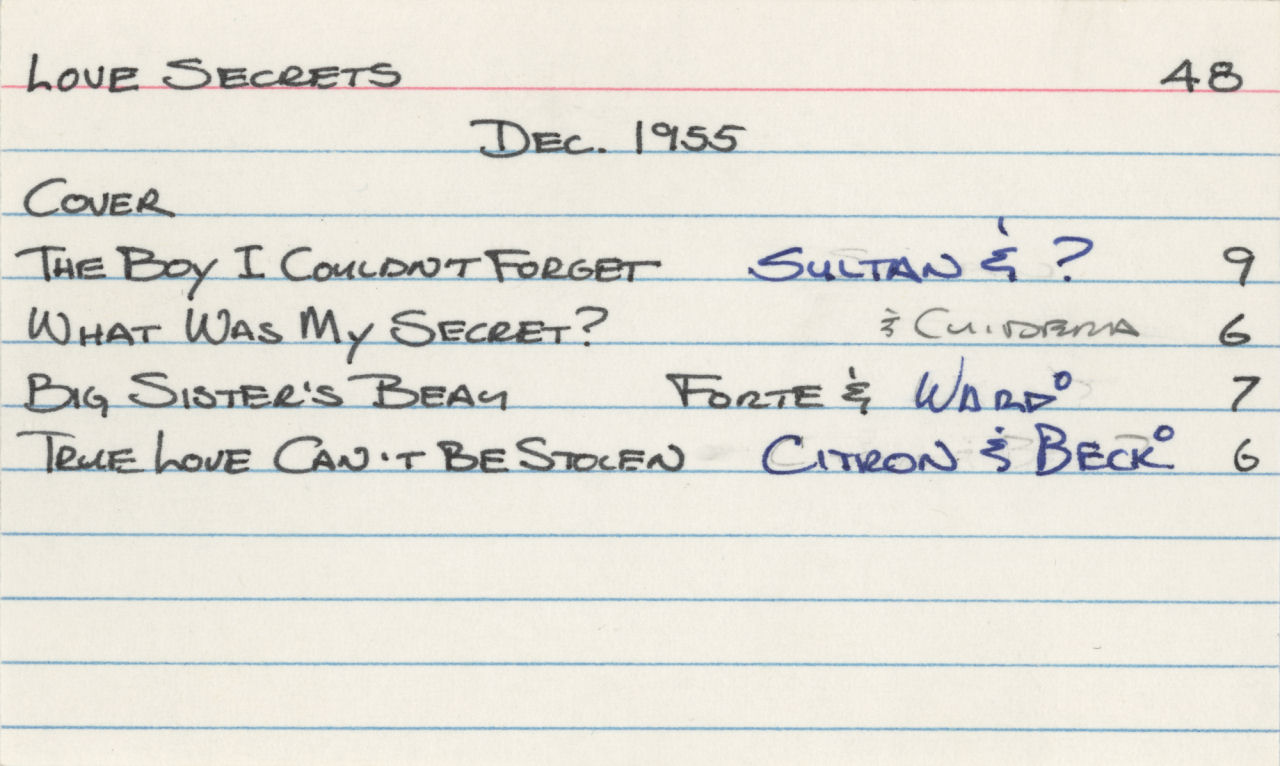 LOVE SECRETS 48
DEC. 1955
COVER
THE BOY I COULDN'T FORGET SULTAN & ? 9
WHAT WAS MY SECRET? & CUIDERA 6
BIG SISTER'S BEAU FORTE & WARD° 7
TRUE LOVE CAN'T BE STOLEN CITRON & BECK° 6